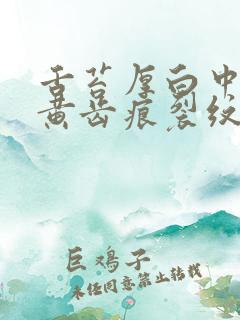 舌苔厚白中
黄齿痕裂纹
巨鸡子
未经同意禁止转载